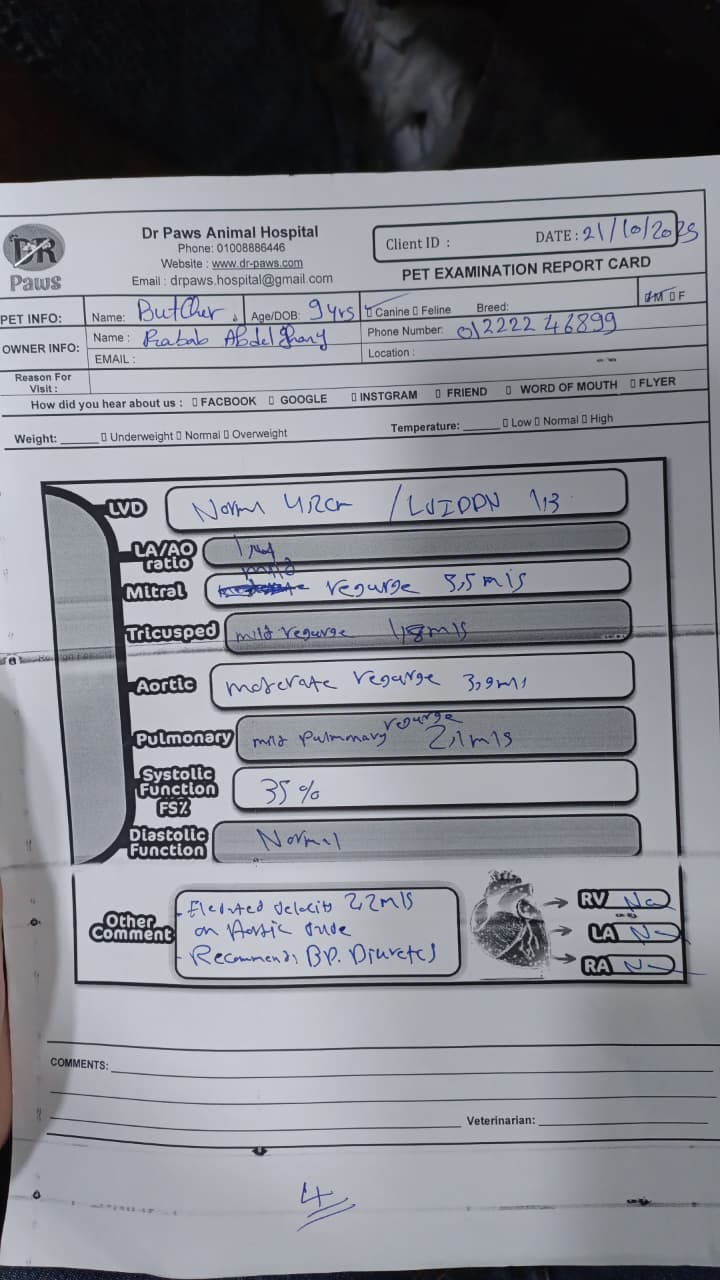 DR
Paws
Dr Paws Animal Hospital
Phone: 01008886446
Website : www.dr-paws.com
Email : drpaws.hospital@gmail.com
Client ID :
DATE : 21/10/2025
PET EXAMINATION REPORT CARD
PET INFO: Name: Butcher Age/DOB: 9 yrs Canine Feline Breed: M F
OWNER INFO: Name : Rabab Abdelghany Phone Number: 012222 46899
EMAIL : Location :
Reason For
Visit :
How did you hear about us : FACBOOK GOOGLE INSTGRAM FRIEND WORD OF MOUTH FLYER
Weight: ______ Underweight Normal Overweight Temperature: ______ Low Normal High
LVD Normal 4,2cm / LVIDDN 1,3
LA/AO
ratio
Mitral mild regurge 3,5 m/s
Tricusped mild regurge 1,8 m/s
Aortic moderate regurge 3,9 m/s
Pulmonary mild pulmonary regurge 2,1 m/s
Systolic
Function
FS% 35 %
Diastolic
Function Normal
Other
Comment
- Elevated velocity 2,2 m/s
on Aortic
- Recommends BP.
RV
LA
RA
COMMENTS:
Veterinarian:
4